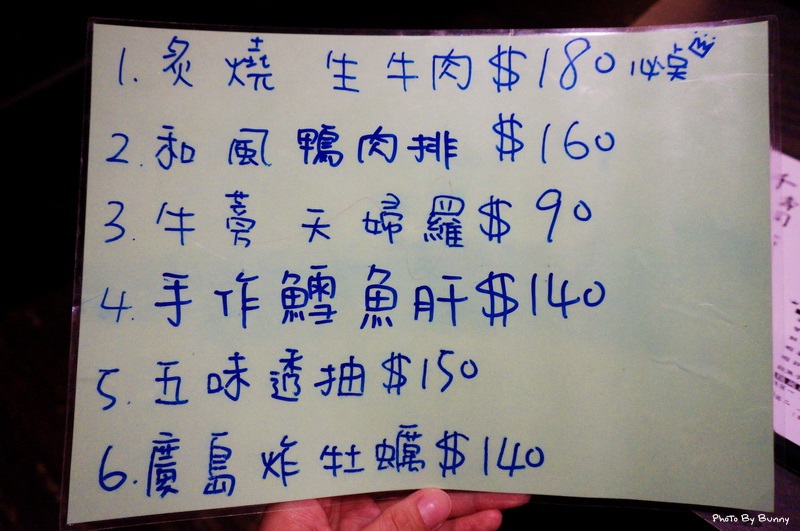 1. 炙燒 生牛肉 $180 必点
2. 和風鴨肉排 $160
3. 牛蒡天婦羅 $90
4. 手作鱈魚肝 $140
5. 五味透抽 $150
6. 廣島炸牡蠣 $140
壽司
Photo By Bunny